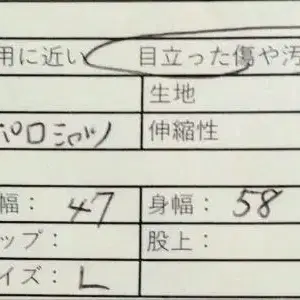 用に近い 目立った傷や汚
生地
ポロシャツ 伸縮性
幅： 47 身幅： 58
ップ： 股上：
イズ： L